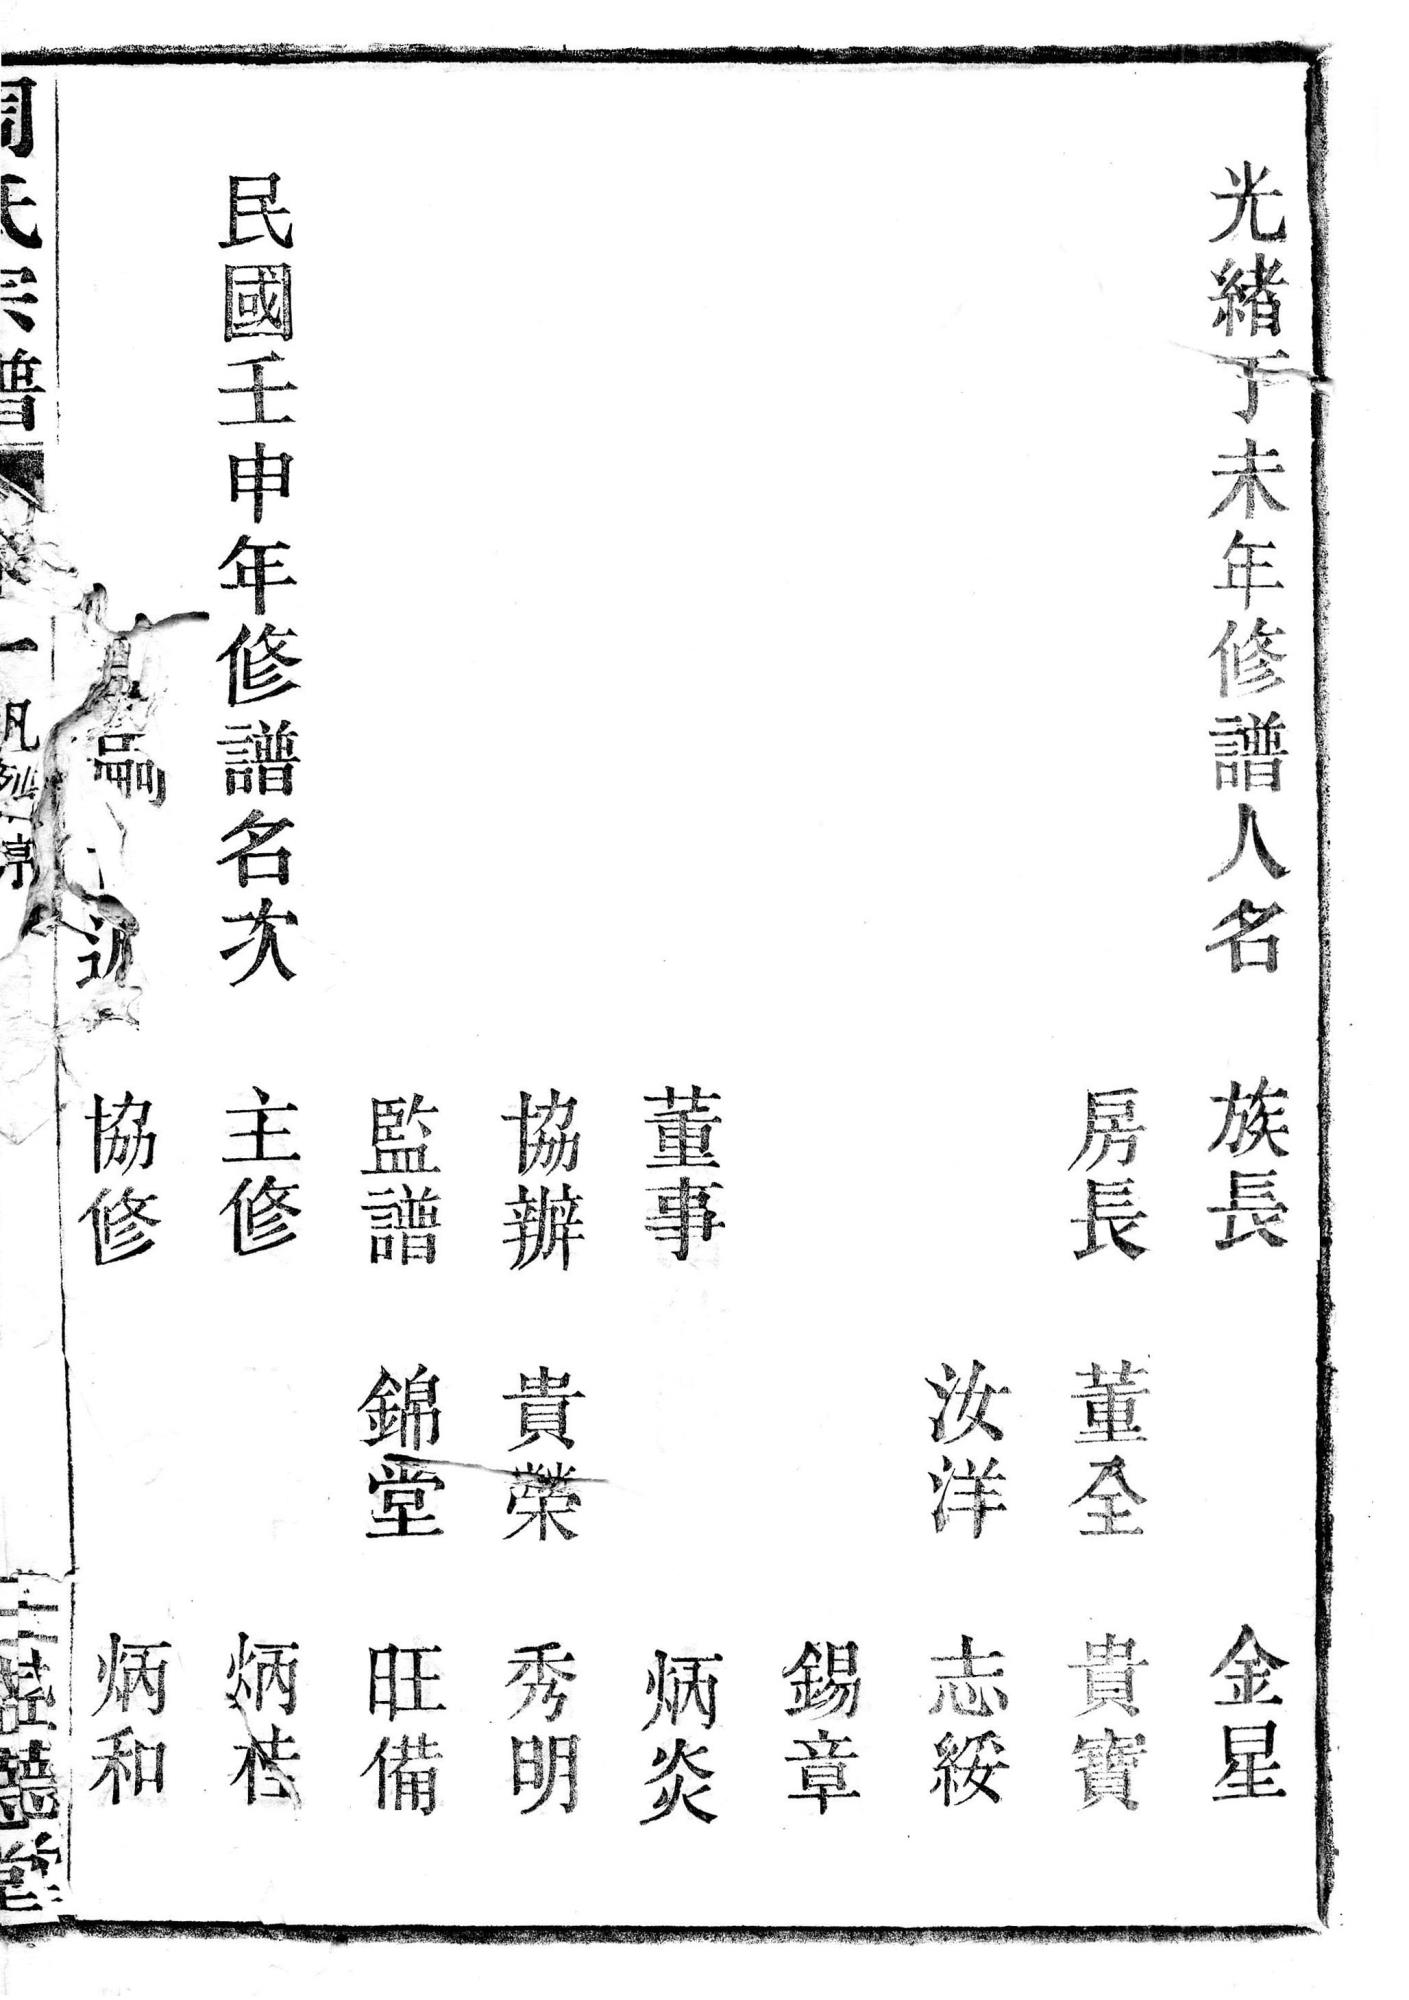 光緒丁未年修譜人名　族長　金星
房長　董全　貴寶
汝洋　志綏
錫章
董事　炳炎
協辦　貴榮　秀明
監譜　錦堂　旺備
民國壬申年修譜名次　主修　炳桂
協修　炳和
周氏宗譜　卷一　凡例　堂